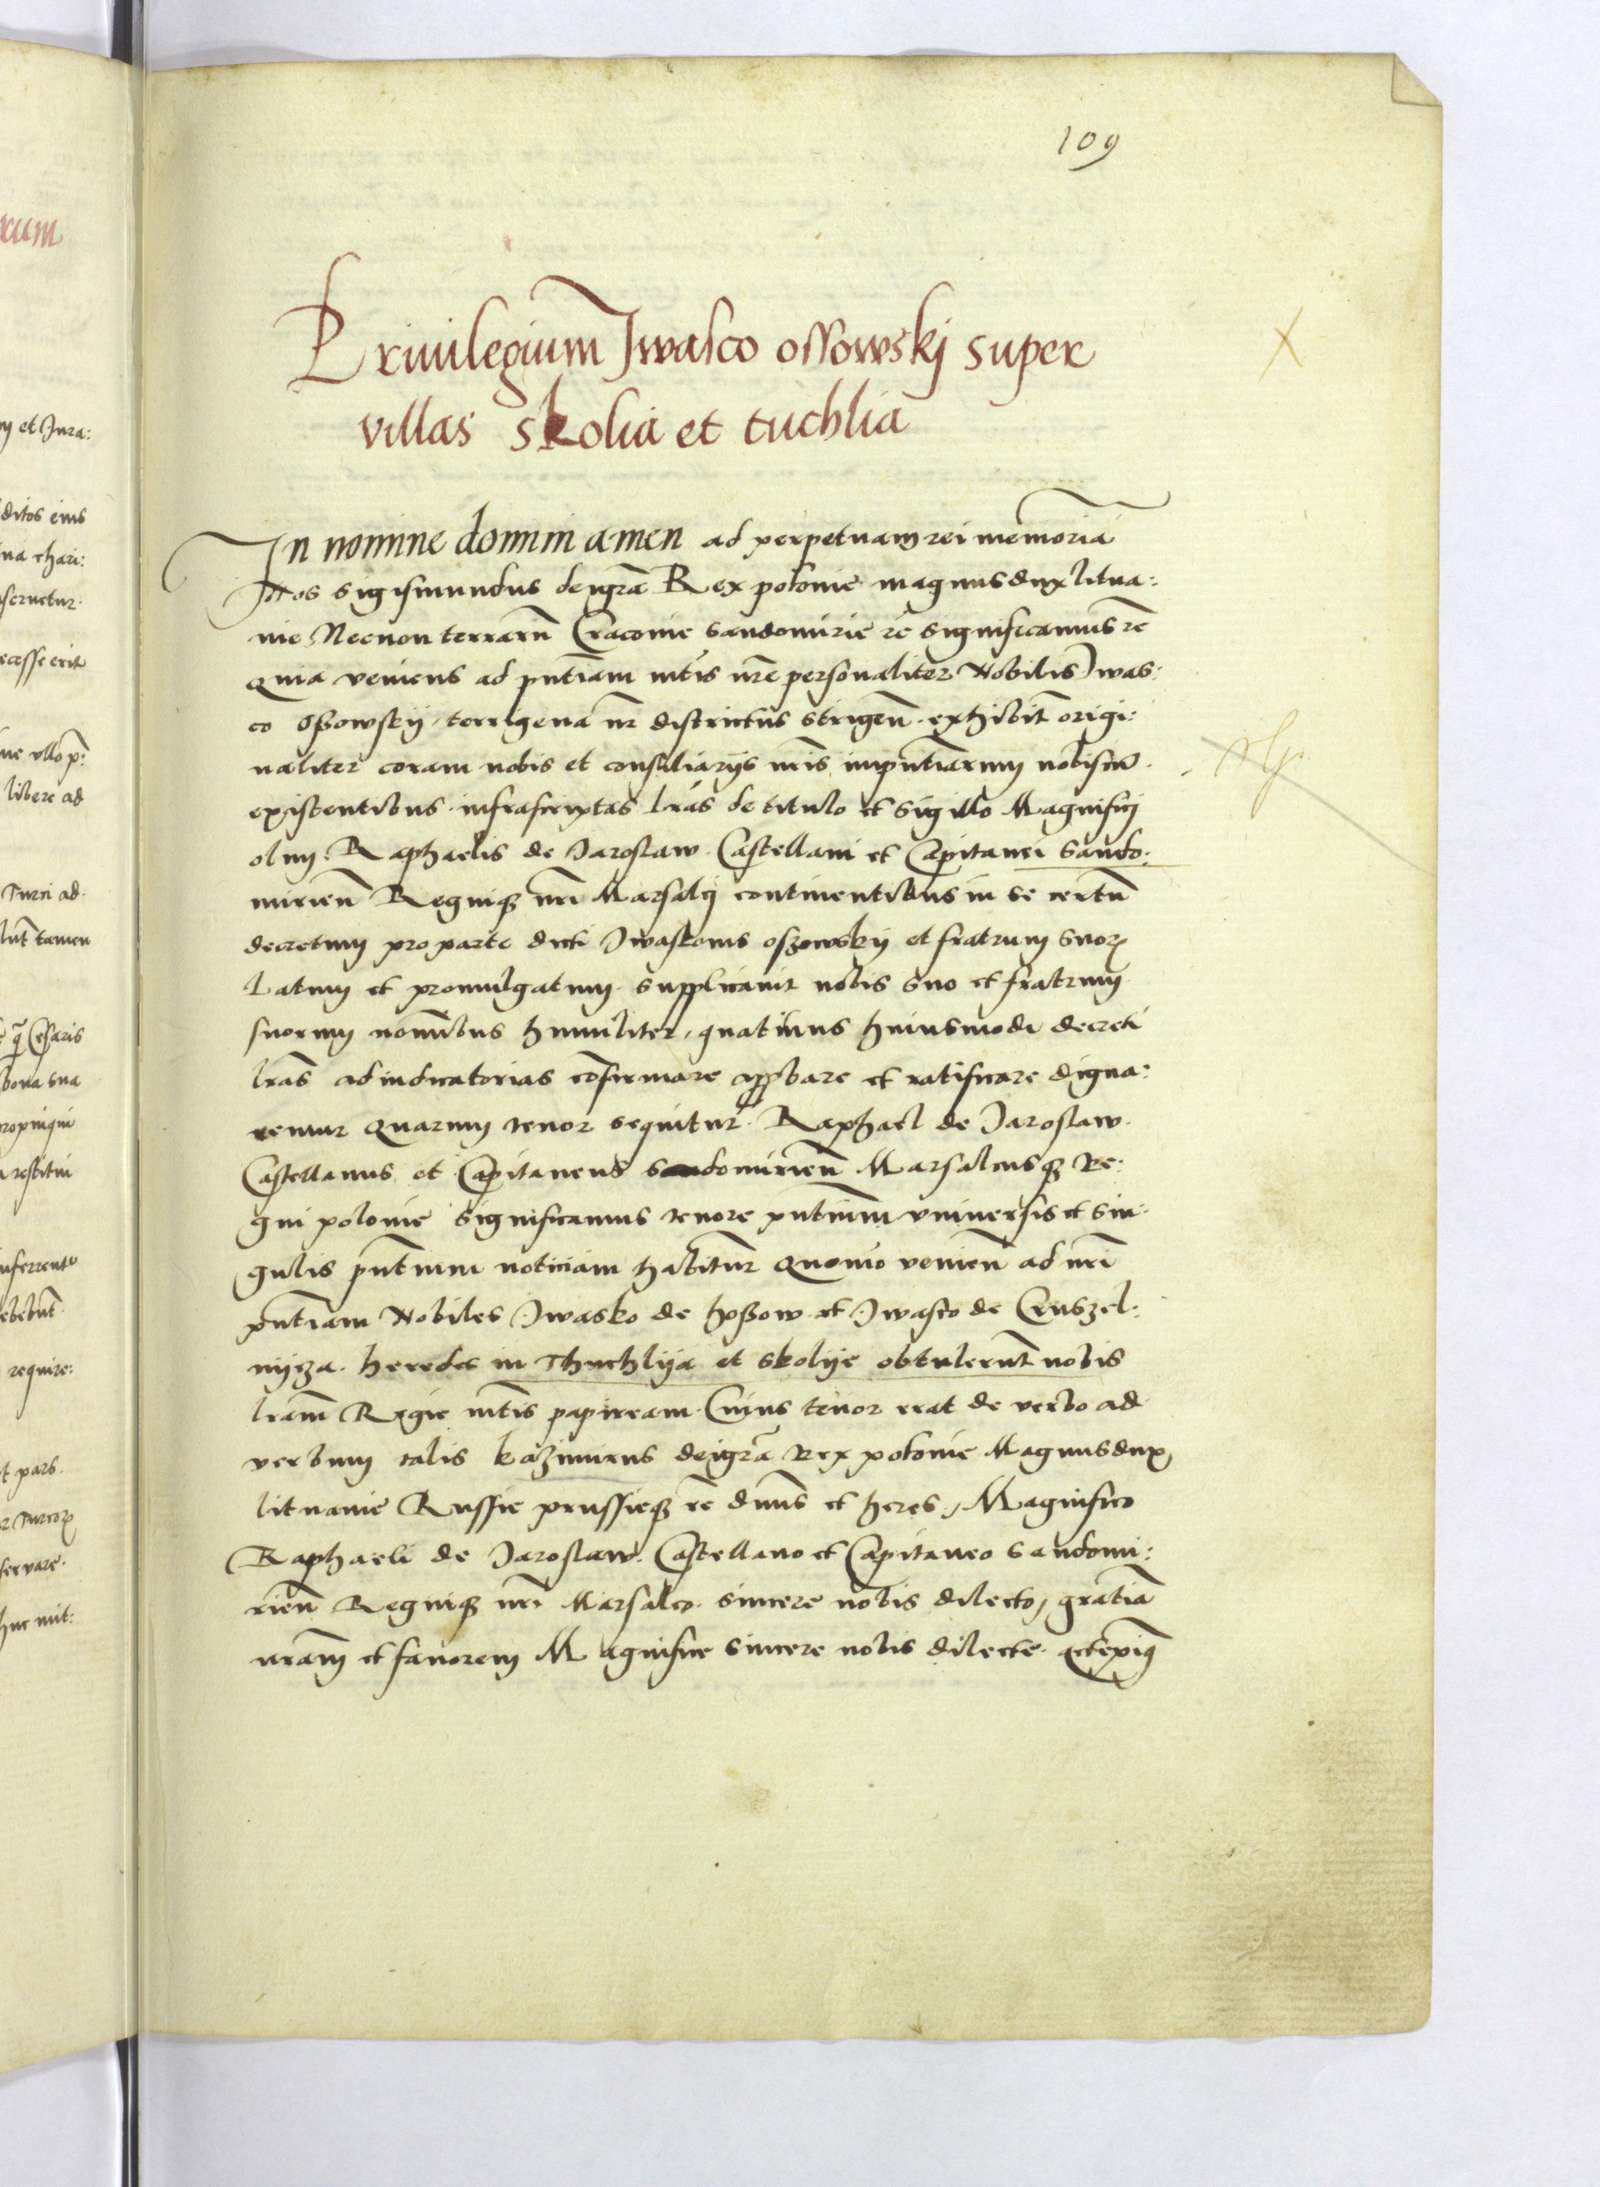 109
Priuilegium Iwasco ossowskj super
villas skolia et tuchlia
In nomine domini amen ad perpetuam rei memoriā
Nos sigismundus dei grā Rex polonie magnus dux litua:
nie Necnon terrarū Cracouie sandomirie rē significamus rē
Quia veniens ad pntiam mtis nrē personaliter Nobilis Iwas:
co Ossowskij terrigena in districtus strigeñ. exhibuit origi:
naliter coram nobis et consiliarijs nris inpntiarum nobiscū
existentibus. infrascriptas lras de titulo et sigillo Magnifici
olim. Raphaelis de Iaroslaw. Castellani et Capitanei sando:
mirieñ Regnique nri Marsalci continentibus in se certū
decretum pro parte dicti Iwasconis oszowskij et fratrum suorum
Latum et promulgatum. supplicauit nobis suo et fratrum
suorum nominibus humiliter, quatinus huiusmodi decreti
lras adiudicatorias cōfirmare approbare et ratificare digna:
remur Quarum tenor sequitur. Raphael de Iaroslaw.
Castellanus et Capitaneus sandomirieñ Marsalcusque Re:
gni polonie significamus tenore pntium vniuersis et sin:
gulis pntium noticiam habitur Quomo venieñ ad nri
pntiam Nobiles Iwasko de hossow. et Iwasco de Cruszel:
nijcza. heredes in Thuchlija et skolije obtulerunt nobis
lram Regie mtis papiream. Cuius tenor erat de verbo ad
verbum talis kazimirus dei grā Rex polonie Magnus dux
lituanie Russie prussieque rē dnus et heres, Magnifico
Raphaeli de Iaroslaw. Castellano et Capitaneo sandomi:
rieñ Regnique nri Marsalco. sincere nobis dilecto, gratiā
nram et fauorem Magnifice sincere nobis dilecte.